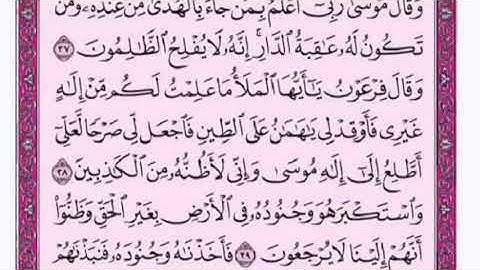 وَقَالَ مُوسَىٰ رَبِّىٓ أَعْلَمُ بِمَن جَآءَ بِٱلْهُدَىٰ مِنْ عِندِهِۦ وَمَن
تَكُونُ لَهُۥ عَٰقِبَةُ ٱلدَّارِ ۖ إِنَّهُۥ لَا يُفْلِحُ ٱلظَّٰلِمُونَ ٣٧
وَقَالَ فِرْعَوْنُ يَٰٓأَيُّهَا ٱلْمَلَأُ مَا عَلِمْتُ لَكُم مِّنْ إِلَٰهٍ
غَيْرِى فَأَوْقِدْ لِى يَٰهَٰمَٰنُ عَلَى ٱلطِّينِ فَٱجْعَل لِّى صَرْحًا لَّعَلِّىٓ
أَطَّلِعُ إِلَىٰٓ إِلَٰهِ مُوسَىٰ وَإِنِّى لَأَظُنُّهُۥ مِنَ ٱلْكَٰذِبِينَ ٣٨
وَٱسْتَكْبَرَ هُوَ وَجُنُودُهُۥ فِى ٱلْأَرْضِ بِغَيْرِ ٱلْحَقِّ وَظَنُّوٓا۟
أَنَّهُمْ إِلَيْنَا لَا يُرْجَعُونَ ٣٩ فَأَخَذْنَٰهُ وَجُنُودَهُۥ فَنَبَذْنَٰهُمْ